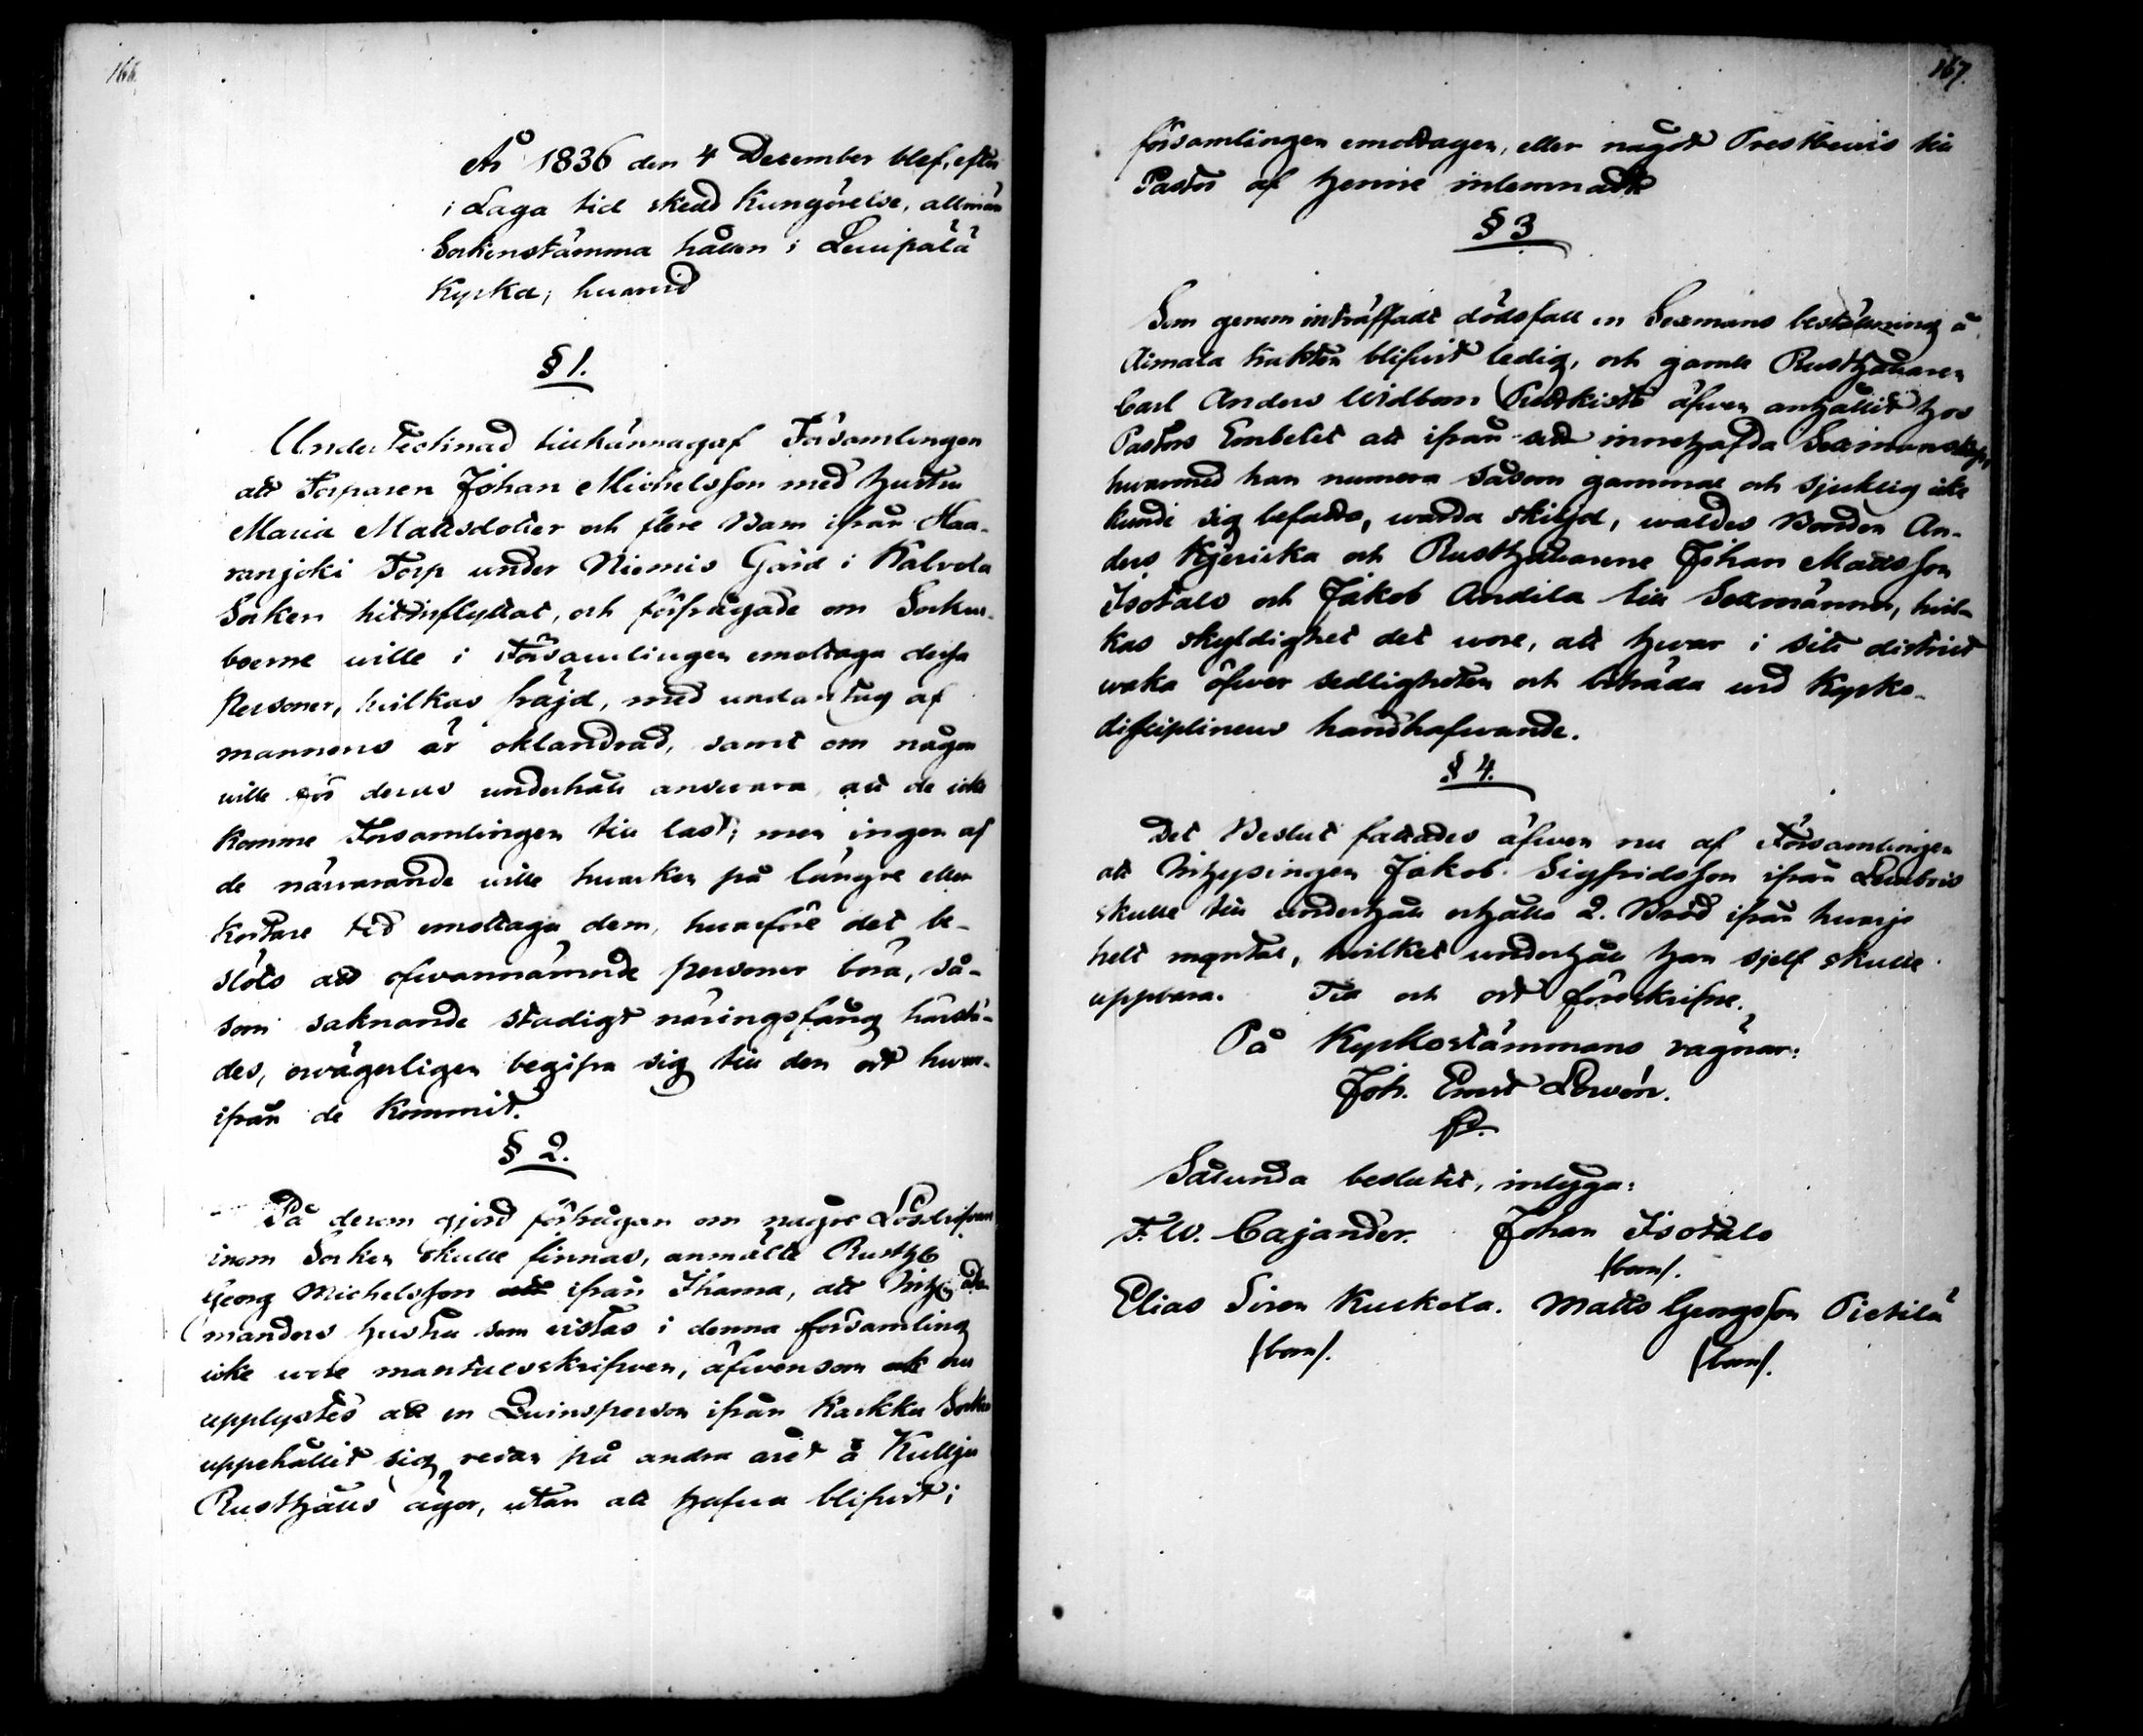 166.
År 1836 den 4 December blef, efter
i Laga tid skedd Kungörelse, allmän
Sockenstämma hållen i Lempälä
Kyrka, hvarvid
§ 1.
Undertecknad tillkännagaf Församlingen
att Torparen Johan Michelsson med hustru
Maria Mattsdotter och flere Barn ifrån Haa-
ranjoki Torp under Niemis Gård i Kalvola
Socken hitinflyttat, och förfrågade om Socken-
boerne wille i Församlingen emottaga dessa
Personer, hvilkas fräjd, med undantag af
mannens är oklandrad, samt om någon
wille för deras underhåll answara att de icke
komme Församlingen till last; men ingen af
de närvarande wille hwarken på längre eller
kortare tid emottaga dem, hvarföre det be-
slöts att ofwannämnde personer böra, så-
som saknande stadigt näringsfång härstä-
des, owägerligen begifva sig till den ort hwar-
ifrån de kommit.
§ 2.
På derom gjord förfrågan om några Lösdrifvare
inom Socken skulle finnas, anmälte Rusth
Georg Michelsson ifrån Ihama, att
manders hustru som vistas i denna församling
icke wore mantalsskrifven, äfwensom nu
upplystes att en Quinsperson ifrån Karkku Socken
uppehållit sig redan på andra året å Kulju
Rusthålls ägor, utan att hafva blifvit i
167.
församlingen emottagen, eller något Prestbevis till
Pastor af henne inlemnadt
§ 3
Som genom inträffadt dödsfall en Sexmans beställning å
Aimala trakten blifvit ledig, och gamle Rusthållaren
Carl Anders Widbom äfwen anhållit hos
Pastors Embetet att ifrån sitt innehafda Sexmanskap,
hwarmed han numera såsom gammal och sjuklig icke
kunde sig befatta, warda skiljd, waldes Bonden An-
ders Kjericka och Rusthållarene Johan Mattsson
Isotalo och Jakob Andila till Sexmänner, hvil-
kas skyldighet det wore, att hwar i sitt district
waka öfwer sedligheten och biträda wid Kyrko-
disciplinens handhafwande.
§ 4.
Det Beslut fattades äfwen nu af Församlingen
att Inhysingen Jakob Sigfridsson ifrån
skulle till underhåll erhålla 2. Bröd ifrån hwarje
helt mantal, hvilket underhåll han sjelf skulle
uppbära. Tid och ort förskrifne.
På Kyrkostämmans vägnar:
Joh. Ernst Lewón.
Sålunda beslutit, intyga:
F. W. Cajander. Johan Isotalo
(bom).
Elias Siren Kuckola. Matts Georgsson Pietilä
(bom). (bom).